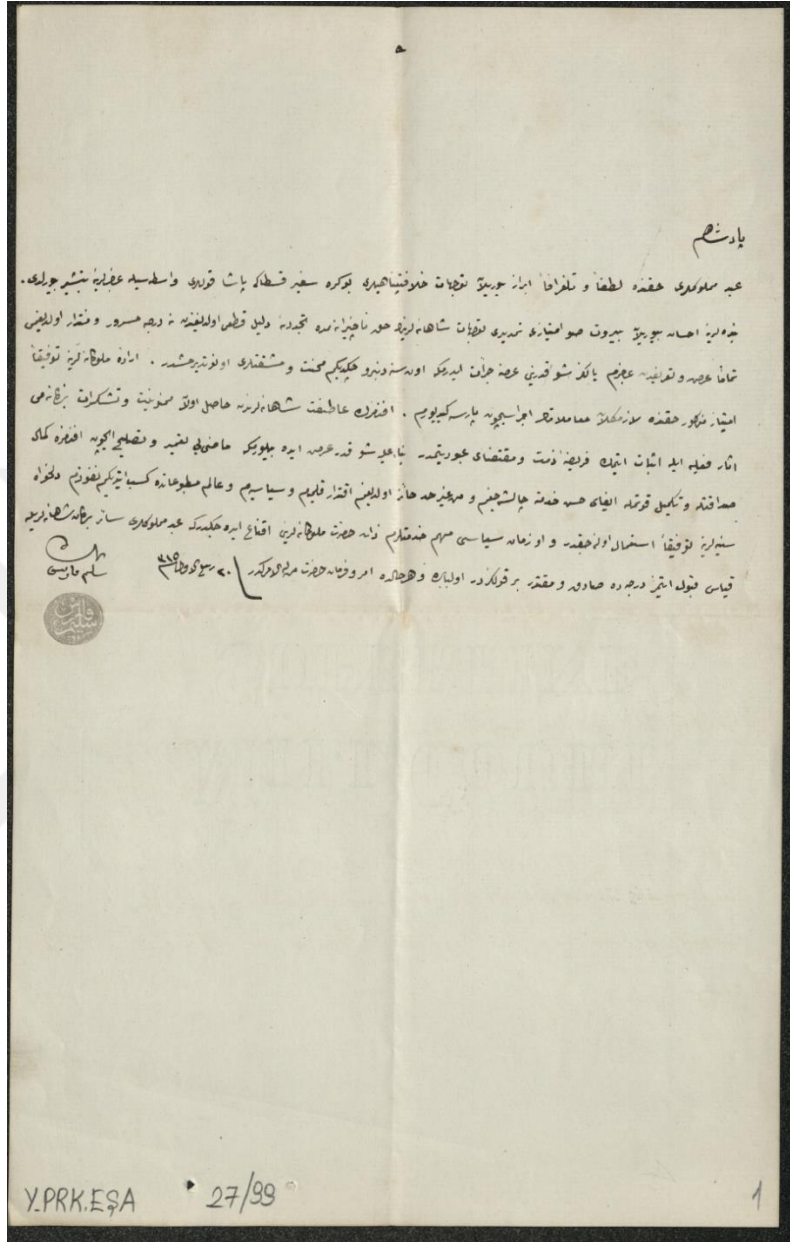 پادشاهم
عبد مملوكلری حقنده لطفاً و تلغرافاً ابراز بیوریلان توجهات خلافتپناهیلری بو كره سفیر پاشا قوللری واسطه سیله تبشیر بیورلدی .
احسان بیوریلان بیروت صو امتیازی تمدیدی توجهات شاهانه لرینك حق ناچیزانه مده تجددینه دلیل قطعی اولدیغندن نه درجه مسرور و مفتخر اولدیغمی
تماماً عرض و عجزم یالكز شو قدرینی عرضه جرأت ایدرمكه اون سنه دنبرو چكدیكم محنت و مشقتلری اونوتدیرمشدر . اراده ملوكانه لرینه توفیقاً
امتیاز مذكور حقنده معاملاتك اجراسیچون پارسه كیدیورم . افندمزك عاطفت شاهانه لرندن حاصل اولان ممنونیت و تشكرات
آثار فعلیه ایله اثبات ایتمك فریضه ذمت و مقتضای عبودیتمدر بناءً علیه شو قدر عرض ایده بیلورمكه ماضی یی و تصلیح ایچون افندمزه كمال
صداقتله و تكمیل قوتمله ایفای حسن خدمته چالیشه جغم و من غیر حد حائز اولدیغم اقتدار قلمیه م و سیاسیه م و عالم مطبوعاتده كسب ایتدیكم نفوذم دلخواه
سنیه لرینه توفیقاً استعمال اوله جقدر و او زمان سیاسی مهم خدمتلرم ذات حضرت ملوكانه لرینی اقناع ایده جكدر كه عبد مملوكلری سائر بندكان شاهانه لریله
قیاس قبول ایتمز درجه ده صادق و مقتدر بر قولكزدر اولبابده و هر حالده امر و فرمان حضرت من له الامركدر ٢٠ ربیع الاول ٣١٥
بنده
سلیم فارس
سلیم فارس
Y.PRK.EŞA 27/99 1